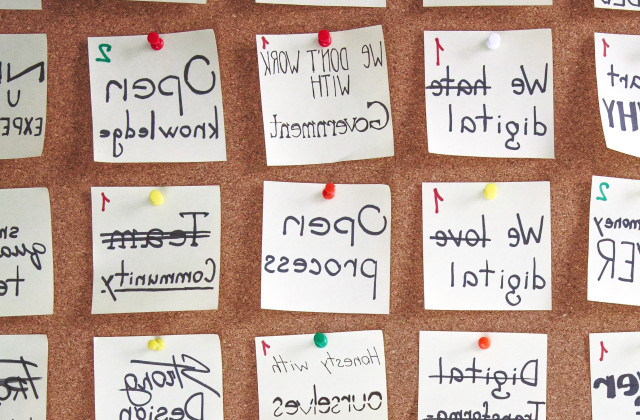 2
Open
knowledge
1
WE DON'T WORK
WITH
Government
1
We hate
digital
1
HY
1
Team
Community
Open
process
1
We love
digital
2
money
VER
Strong
Design
1
Honesty with
ourselves
Digital
Transforma-
1
ver